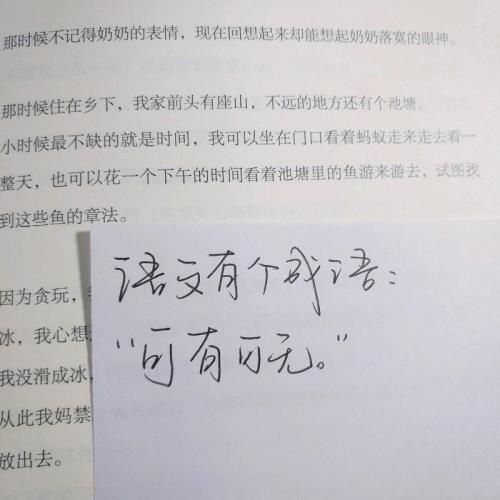 那时候不记得奶奶的表情，现在回想起来却能想起奶奶落寞的眼神。
那时候住在乡下，我家前头有座山，不远的地方还有个池塘。
小时候最不缺的就是时间，我可以坐在门口看着蚂蚁走来走去看一
整天，也可以花一个下午的时间看着池塘里的鱼游来游去，试图找
到这些鱼的章法。
语文有个成语：
“可有可无。”
因为贪玩，
冰，我心想
我没滑成冰，
从此我妈禁
放出去。